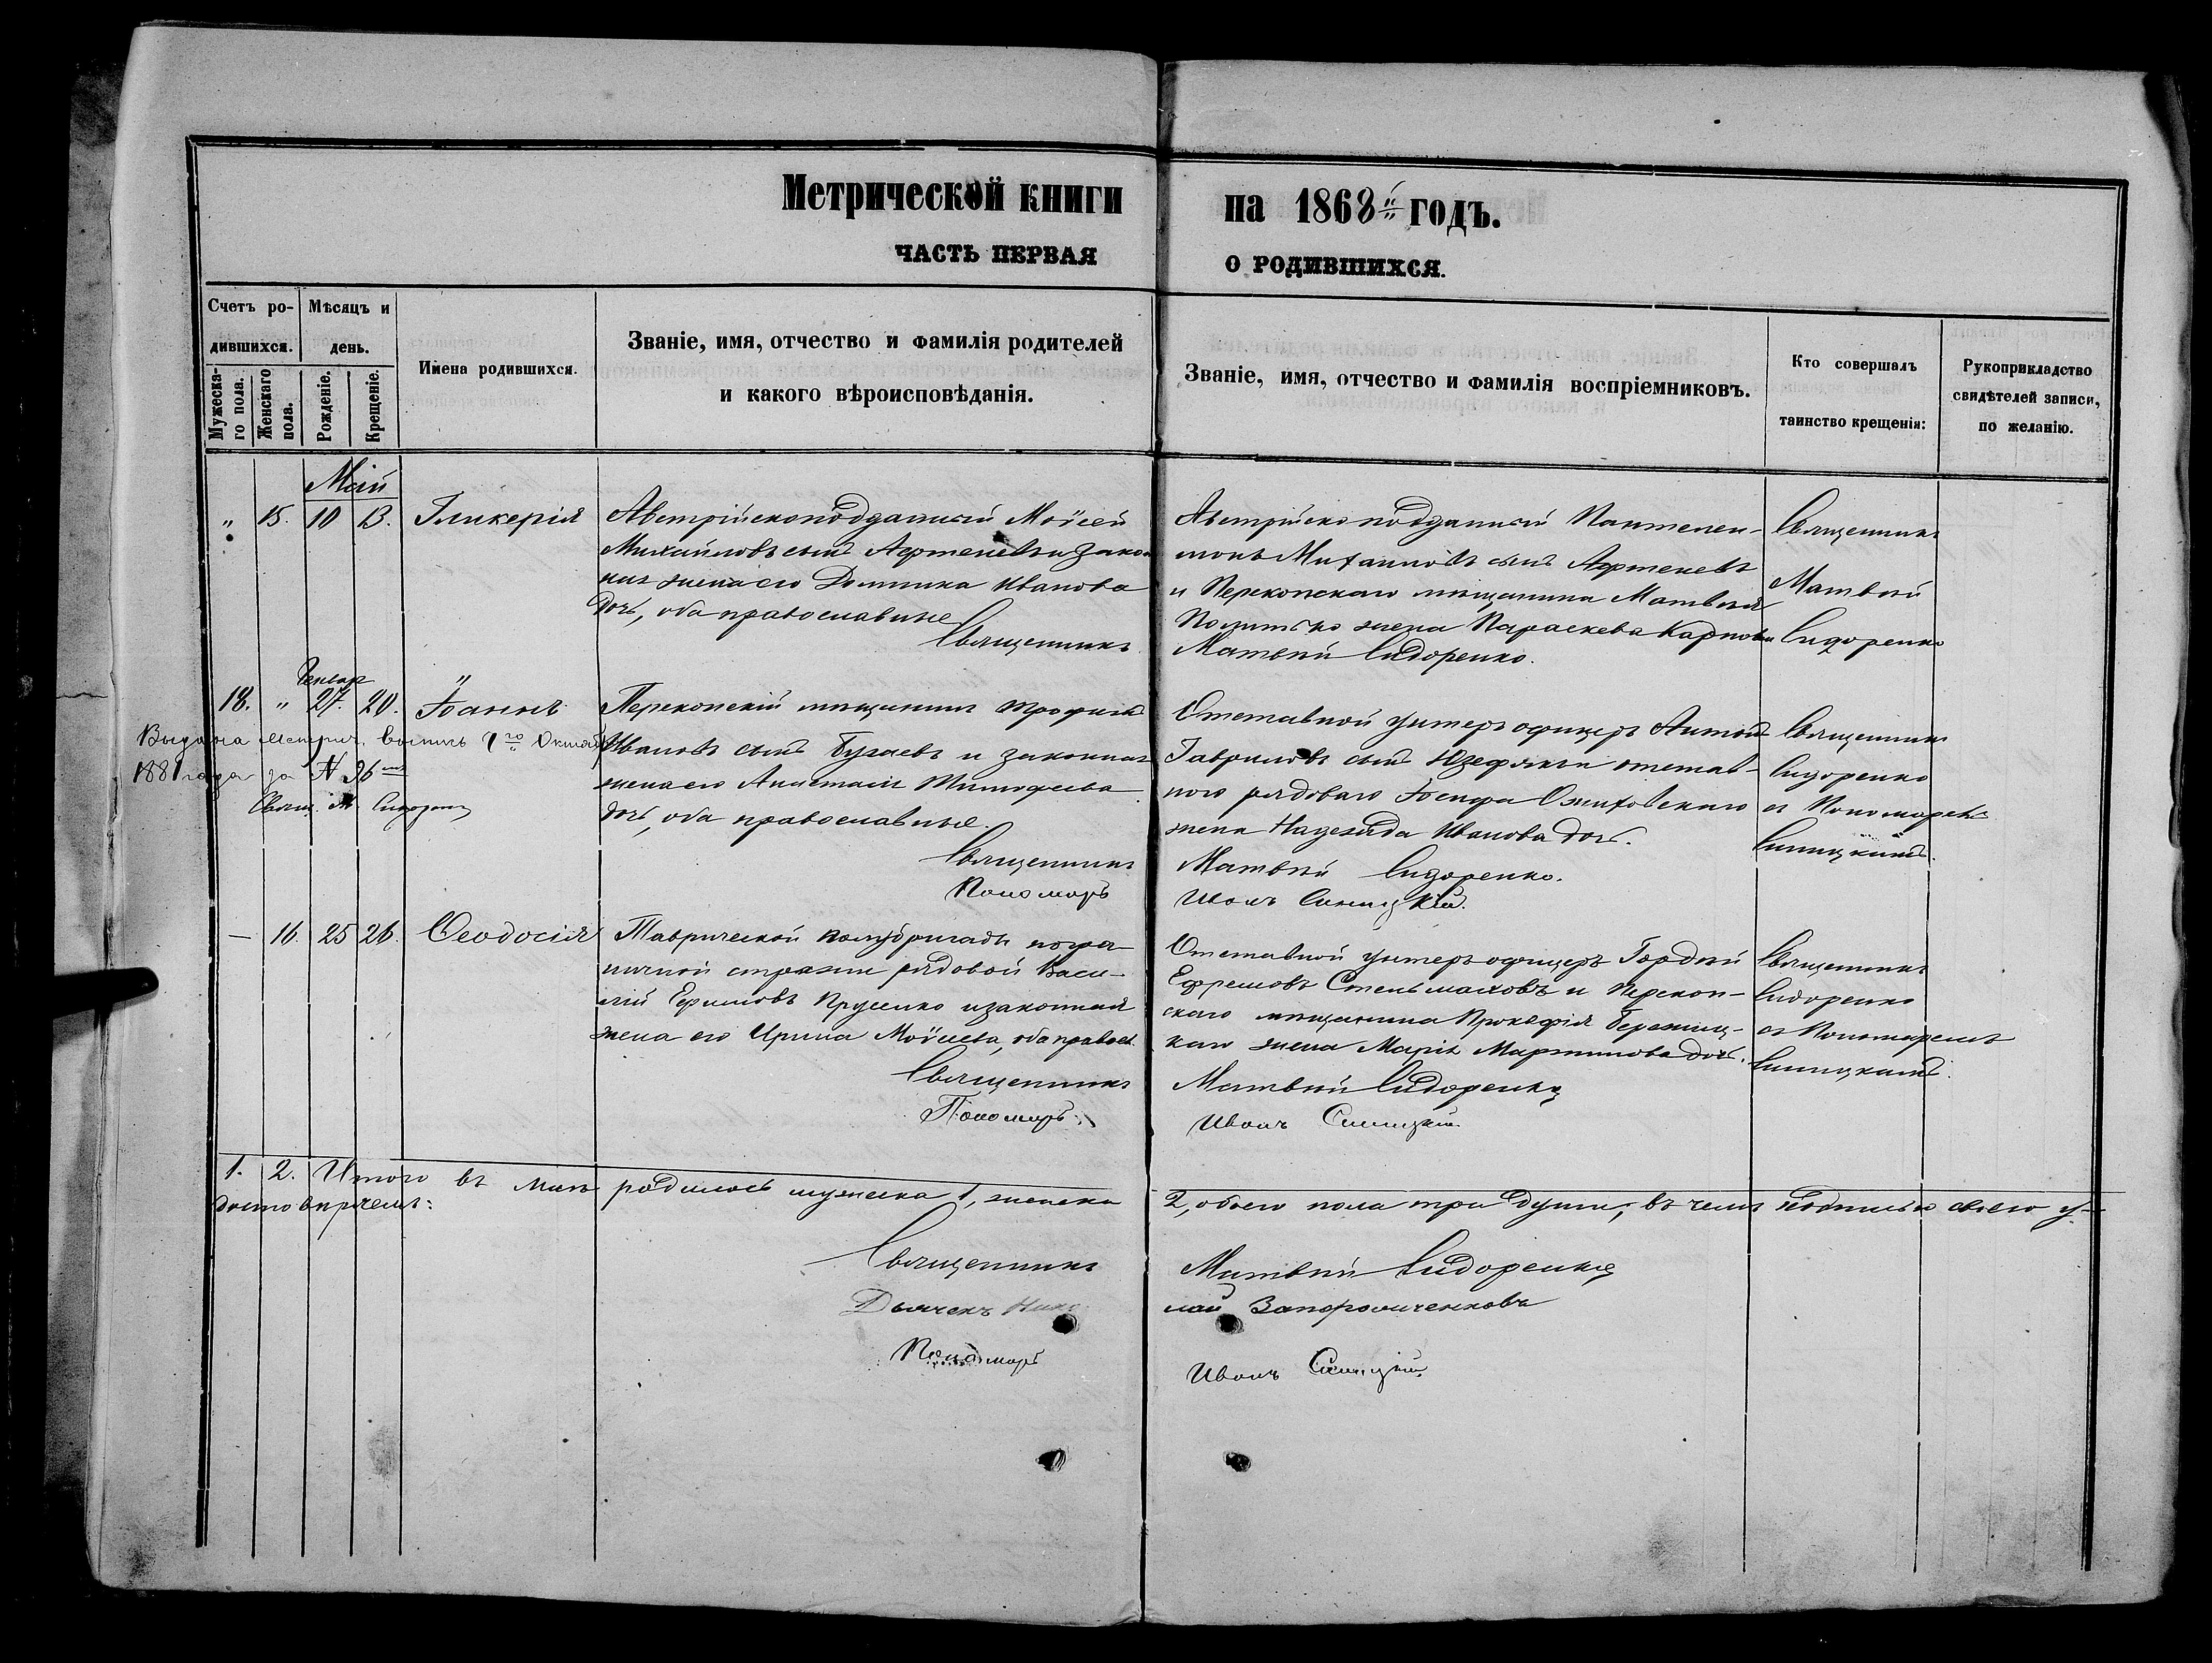 Метрической книги на 1868 годъ.
ЧАСТЬ ПЕРВАЯ О РОДИВШИХСЯ.
Счетъ ро-
дившихся.
Мужеска-
го пола.
Женскаго
пола.
Мѣсяцъ и
день.
Рожденіе.
Крещеніе.
Имена родившихся.
Званіе, имя, отчество и фамилія родителей
и какого вѣроисповѣданія.
Званіе, имя, отчество и фамилія воспріемниковъ.
Кто совершалъ
таинство крещенія:
Рукоприкладство
свидѣтелей записи,
по желанію.
Май
" 15. 10 13. Гликерія
Австрійскоподданный Моѵсей
Михайловъ сынъ Афтеневъ и закон
ная жена его Домника Иванова
дочь, оба православные
Священникъ
Австрійскоподданный Пантелеи-
монъ Михаиловъ сынъ Афтеневъ
и Перекопскаго мѣщанина Матвея
жена Параскева Карпова
Матвѣй Сидоренко.
Священникъ
Матвѣй
Сидоренко
Генвар
18. " 27. 20. Іоаннъ
Выдана метрич. выпись 1го Октяб
1881 года за № 26мъ
Свящ. М Сидорен
Перекопскій мѣщанинъ Трофимъ
Ивановъ сынъ Бугаевъ и законная
жена его Анастасія Тимофеева
дочь, оба православные.
Священникъ
Пономарь
Отставной унтеръ офицеръ Антоній
Гавриловъ сынъ и отстав-
ного рядоваго Іосифа
жена Надежда Иванова дочь.
Матвѣй Сидоренко.
Иванъ Синицкій.
Священникъ
Сидоренко
съ Пономаремъ
Синицкимъ.
— 16. 25 26. Ѳеодосія
Таврической полубригады погра-
ничной стражи рядовой Васи-
лій Ефимовъ Пруненко и законная
жена его Ирина Моѵсеева, оба правосл.
Священникъ
Пономарь
Отставной унтеръ офицеръ Гордѣй
Ефремовъ Стельмаховъ и Перекоп-
скаго мѣщанина Прокофія Бережниц-
каго жена Марія Мартинова дочь.
Матвѣй Сидоренко
Иванъ Синицкій.
Священникъ
Сидоренко
съ Пономаремъ
Синицкимъ.
1. 2. Итого въ маѣ родилось мужеска 1, женска 2, обоего пола три души, въ чемъ подписью своею у-
достовѣряемъ:
Священникъ Матвѣй Сидоренко
Дьячекъ Николай Запорожченковъ
Пономарь Иванъ Синицкій